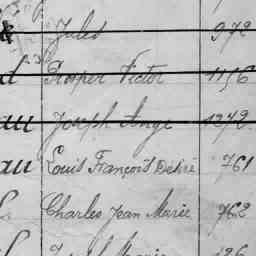 Jules 972
d Prosper Victor 1156
au Joseph Ange 1272
au Louis François Désiré 761
L. Charles Jean Marie 762